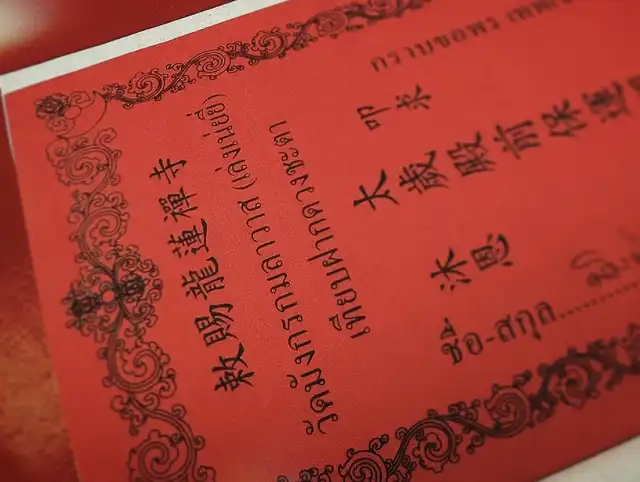 敕賜龍蓮禪寺
วัดมังกรกมลาวาส (เล่งเน่ยยี่)
เทียบฝากดวงชะตา
กราบขอพร
叩求
太歲殿前保運
沐恩
ชื่อ-สกุล